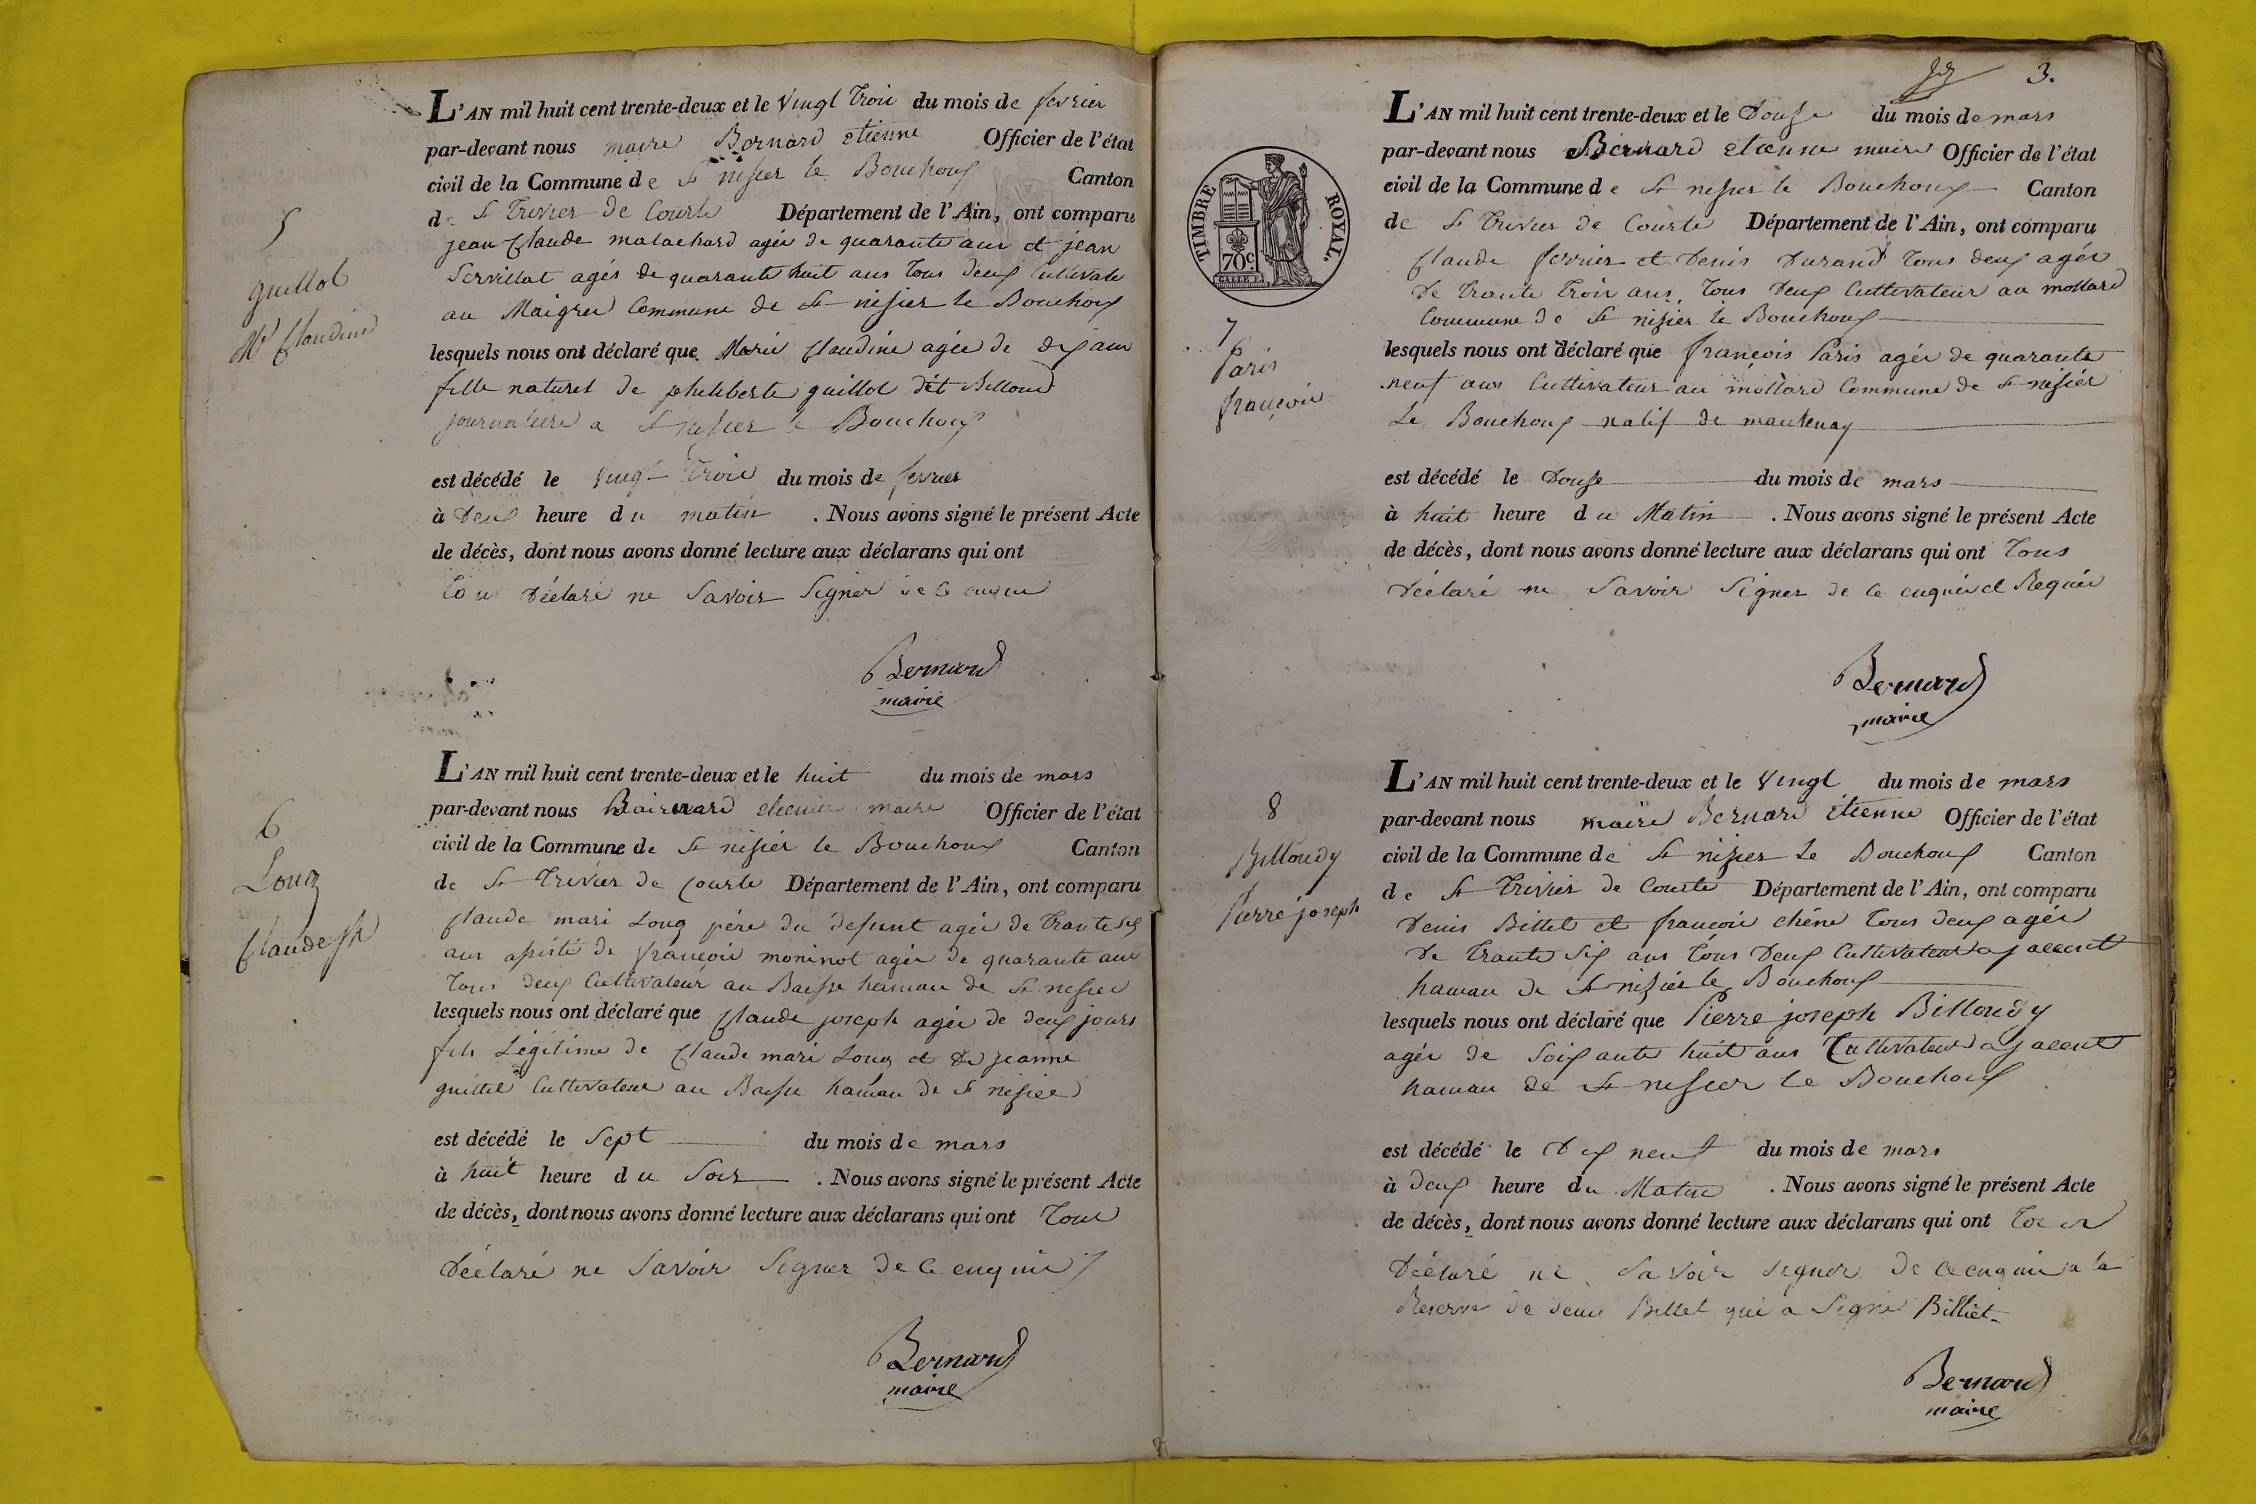 5
guillot
Me Claudine
L'AN mil huit cent trente-deux et le vingt trois du mois de fevrier
par-devant nous maire Bernard etienne Officier de l'état
civil de la Commune de St nisier le Bouchoux Canton
de St Trivier de Courte Département de l'Ain, ont comparu
jean Claude malachard agés de quarante ans et jean
Servillat agés de quarante huit ans tous deux Cultivate
au Maigret Commune de St nisier le Bouchoux
lesquels nous ont déclaré que Marie Claudine agée de dix ans
fille naturel de philiberte guillot dit Billoud
journaliere a St nisier le Bouchoux
est décédé le vingt trois du mois de fevrier
à deux heure du matin . Nous avons signé le présent Acte
de décès, dont nous avons donné lecture aux déclarans qui ont
tous Déclaré ne Savoir Signer de ce enquis
Bernard
maire
6
Long
Claude jh
L'AN mil huit cent trente-deux et le huit du mois de mars
par-devant nous Bairnard etienne maire Officier de l'état
civil de la Commune de St nisier le Bouchoux Canton
de St Trivier de Courte Département de l'Ain, ont comparu
Claude mari Long pére du defunt agés de trante six
ans asisté de françois moninot agés de quarante ans
Tous deux Cultivateur au Baisse hamau de St nisier
lesquels nous ont déclaré que Claude joseph agés de deux jours
fils Légitime de Claude mari Long et de jeanne
guittel Cultivateur au Baisse hamau de St nisier
est décédé le Sept du mois de mars
à huit heure du Soir . Nous avons signé le présent Acte
de décès, dont nous avons donné lecture aux déclarans qui ont Tous
Déclaré ne Savoir Signer de ce enquis
Bernard
maire
3.
TIMBRE ROYAL.
70c
7
Paris
françois
L'AN mil huit cent trente-deux et le Douse du mois de mars
par-devant nous Bernard etienne maire Officier de l'état
civil de la Commune de St nisier le Bouchoux Canton
de St Trivier de Courte Département de l'Ain, ont comparu
Claude ferrier et Denis Durand Tous deux agés
De trante trois ans, Tous Deux Cultivateur au mollard
Commune de St nizier le Bouchoux
lesquels nous ont déclaré que françois Paris agés de quarante
neuf ans Cultivateur au mollard Commune de St nisier
Le Bouchoux natif de mantenay
est décédé le Douse du mois de mars
à huit heure du Matin . Nous avons signé le présent Acte
de décès, dont nous avons donné lecture aux déclarans qui ont Tous
Déclaré ne Savoir Signer de ce enquis et Requis
Bernard
maire
8
Billoudy
Pierre joseph
L'AN mil huit cent trente-deux et le vingt du mois de mars
par-devant nous maire Bernard Etienne Officier de l'état
civil de la Commune de St nizier Le Bouchoux Canton
de St Trivier de Courte Département de l'Ain, ont comparu
Denis Billet et françois chêne Tous deux agés
De trante Six ans Tous Deux Cultivateur a jaccent
hamau de St nizier le Bouchoux
lesquels nous ont déclaré que Pierre joseph Billoudy
agés de Soixante huit ans Cultivateur a jaccent
hamau de St nisier le Bouchoux
est décédé le Dix neuf du mois de mars
à deux heure du Matin . Nous avons signé le présent Acte
de décès, dont nous avons donné lecture aux déclarans qui ont Tous
Déclaré ne Savoir Signer De ce enquis a la
Reserve de denis Billet qui a Signé Billiet
Bernard
maire